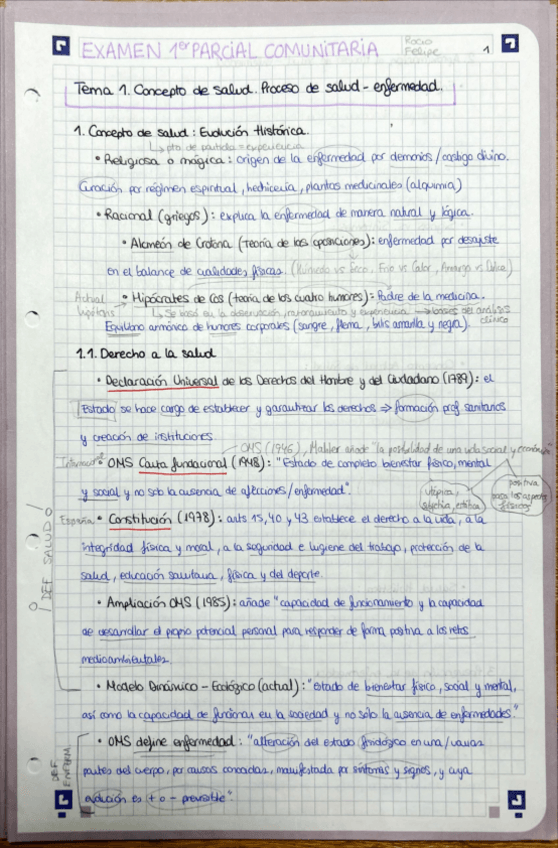 EXAMEN 1er PARCIAL COMUNITARIA
Rocío Felipe
1
Tema 1. Concepto de salud. Proceso de salud - enfermedad.
1. Concepto de salud: Evolución Histórica.
↳ pto de partida = experiencia
• Religiosa o mágica: origen de la enfermedad por demonios / castigo divino.
Curación por régimen espiritual, hechicería, plantas medicinales (alquimia)
• Racional (griegos): explica la enfermedad de manera natural y lógica.
• Alcmeón de Crotona (Teoría de las oposiciones): enfermedad por desajuste
en el balance de cualidades físicas. (Húmedo vs Seco, Frío vs Calor, Amargo vs Dulce)
• Hipócrates de Cos (teoría de los cuatro humores): Padre de la medicina.
Actual
↳ Se basó en la observación, razonamiento y experiencia → bases del análisis
clínico
Equilibrio armónico de humores corporales (sangre, flema, bilis amarilla y negra).
1.1. Derecho a la salud
• Declaración Universal de los Derechos del Hombre y del Ciudadano (1789): el
Estado se hace cargo de establecer y garantizar los derechos ⇒ formación prof sanitarios
y creación de instituciones.
OMS (1946), Mahler añade "la posibilidad de una vida social y económica
Internacional
• OMS Carta fundacional (1948): "Estado de completo bienestar físico, mental
y social y no solo la ausencia de afecciones / enfermedad".
utópica,
subjetiva, estática
positiva
España
• Constitución (1978): arts 15, 40 y 43 establece el derecho a la vida, a la
integridad física y moral, a la seguridad e higiene del trabajo, protección de la
salud, educación sanitaria, física y del deporte.
DEF SALUD
• Ampliación OMS (1985): añade "capacidad de funcionamiento y la capacidad
de desarrollar el propio potencial personal para responder de forma positiva a los retos
medioambientales.
• Modelo Dinámico - Ecológico (actual): "estado de bienestar físico, social y mental,
así como la capacidad de funcionar en la sociedad y no sólo la ausencia de enfermedades."
DEF ENFERM.
• OMS define enfermedad: "alteración del estado fisiológico en una / varias
partes del cuerpo, por causas conocidas, manifestada por síntomas y signos, y cuya
evolución es + o - previsible".